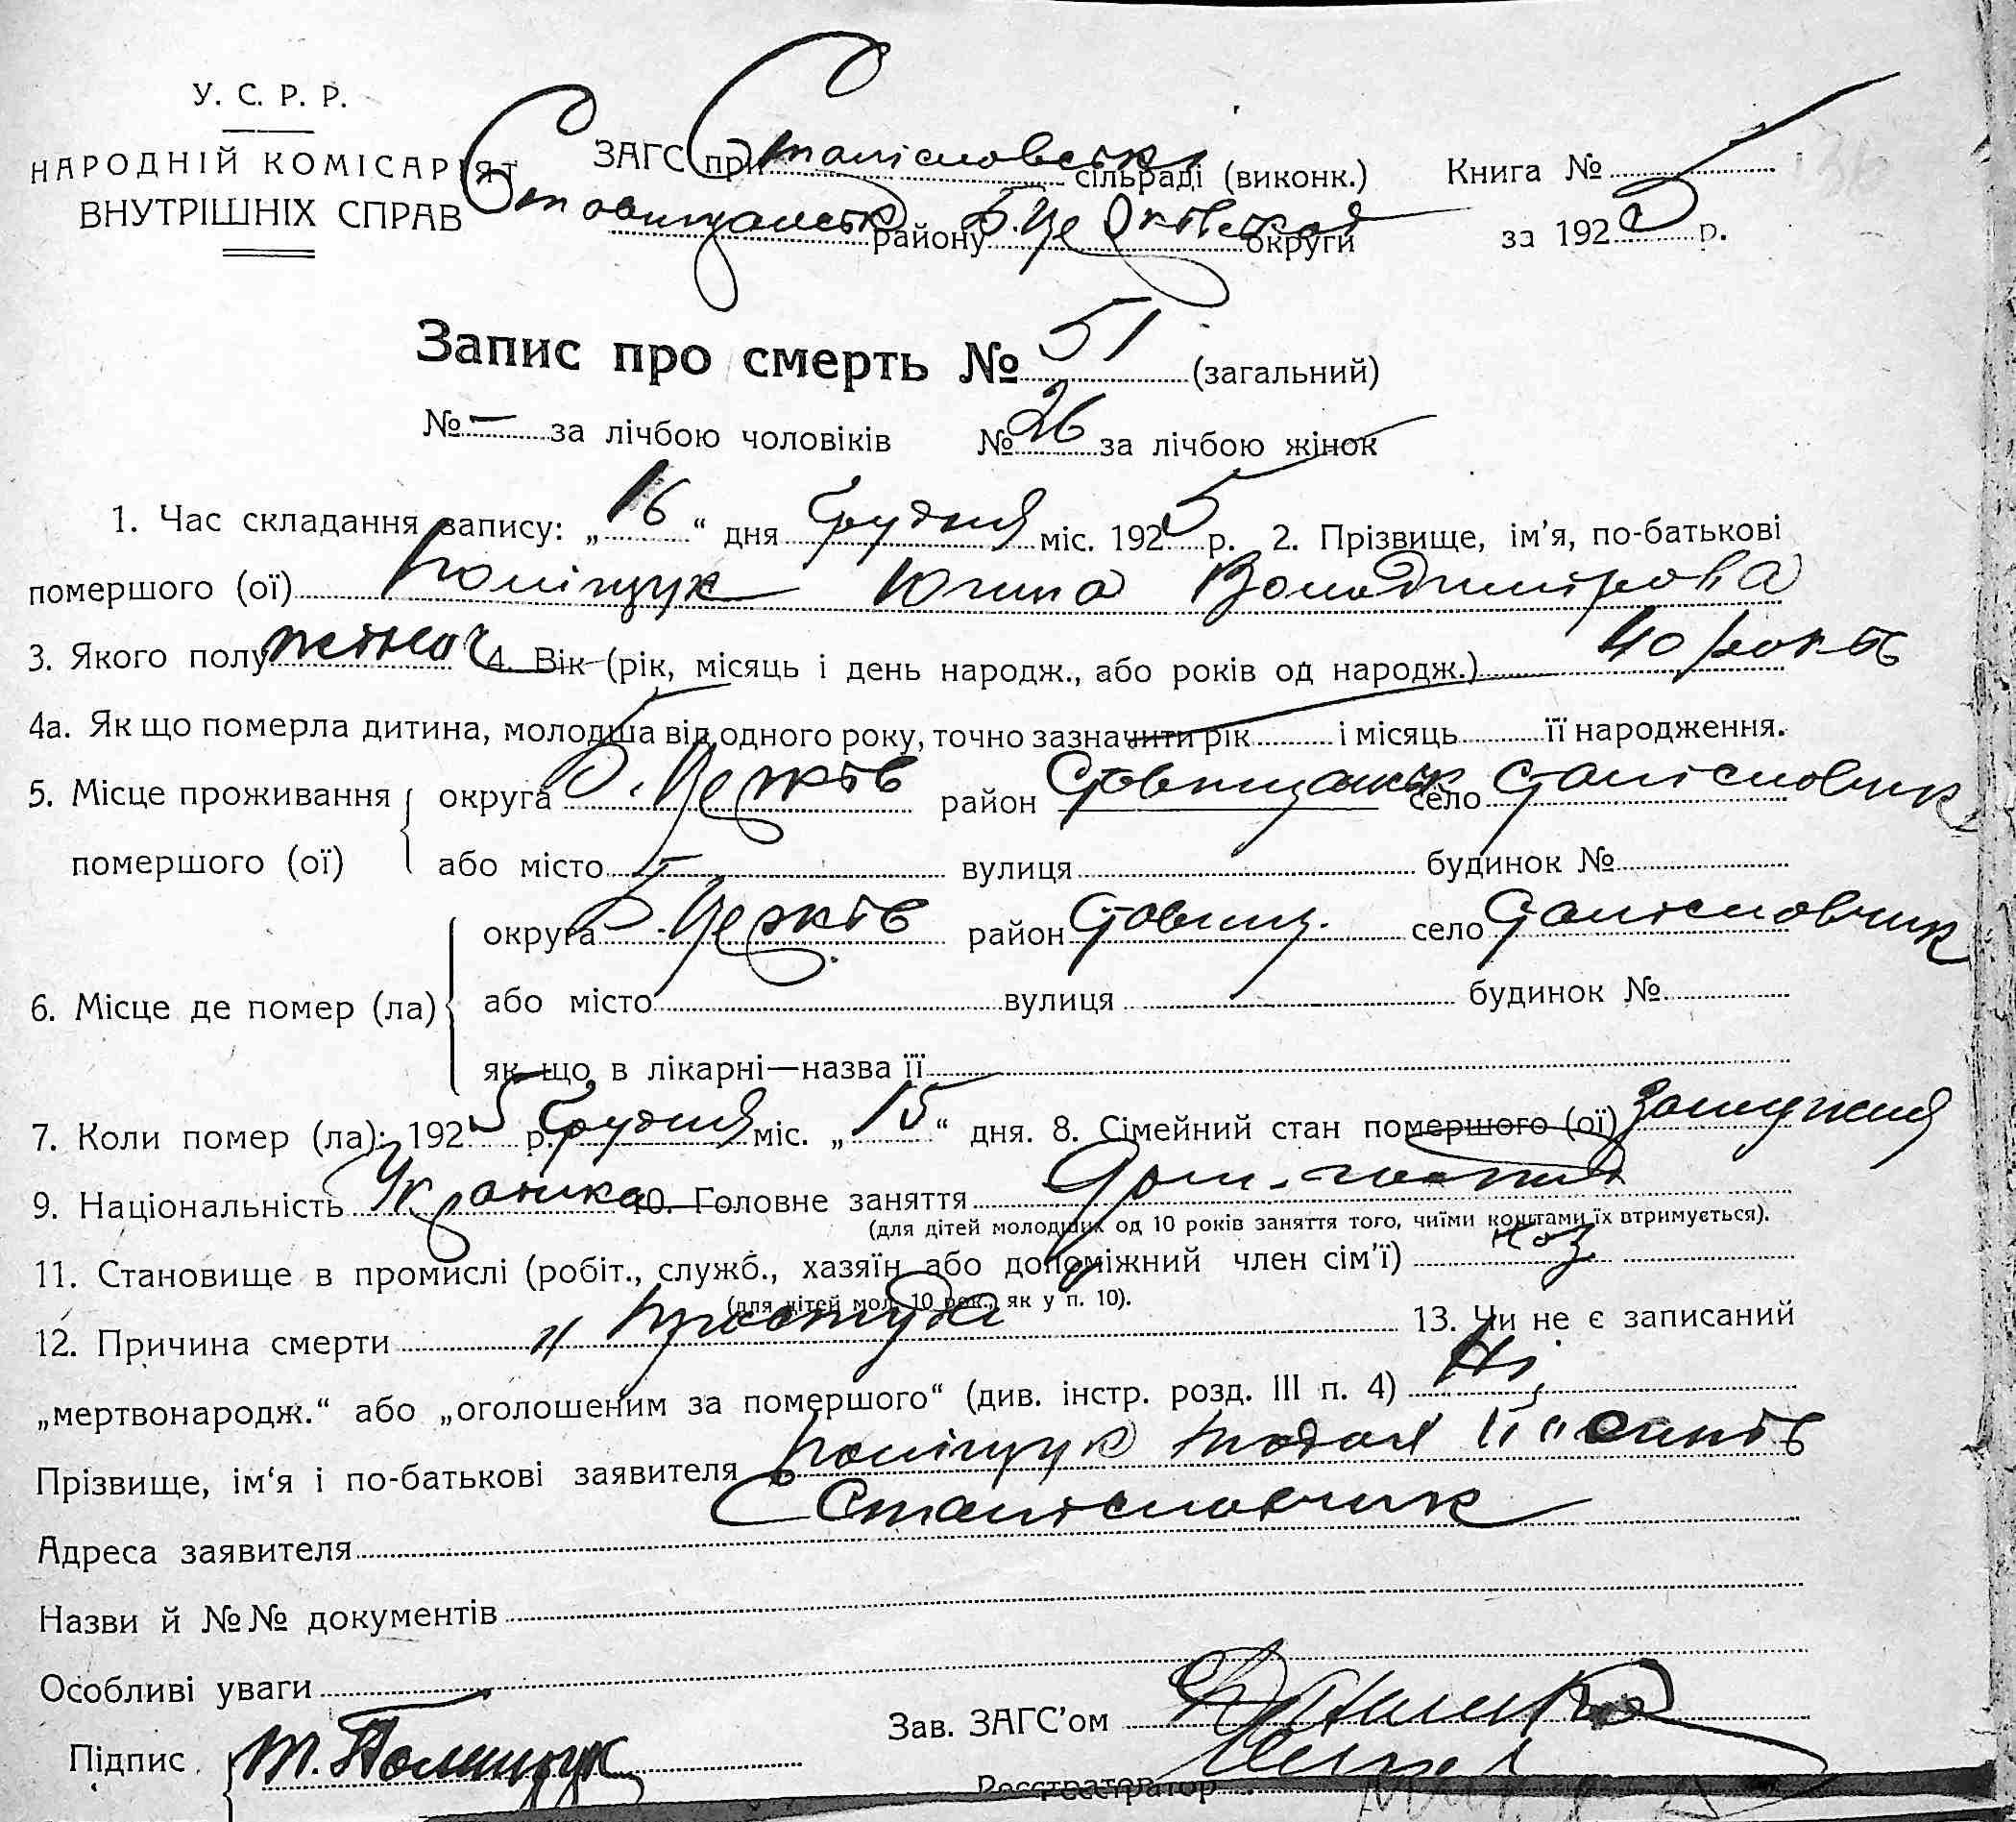 У. С. Р. Р.
НАРОДНІЙ КОМІСАРІЯТ
ВНУТРІШНІХ СПРАВ
ЗАГС при Станісловські сільраді (виконк.)
Ставищанськ району Б.Церківської округи
Книга №
за 1925 р.
Запис про смерть № 51 (загальний)
№ — за лічбою чоловіків № 26 за лічбою жінок
1. Час складання запису: „16“ дня Грудня міс. 1925 р. 2. Прізвище, ім’я, по-батькові
помершого (ої) Поліщук Юлина Володимірова
3. Якого полу жіноч 4. Вік (рік, місяць і день народж., або років од народж.) 40 років
4а. Як що померла дитина, молодша від одного року, точно зазначити рік і місяць її народження.
5. Місце проживання помершого (ої) округа Б.Церків район Ставищанськ село Станісловчик
або місто вулиця будинок №
6. Місце де помер (ла) округа Б.Церків район Ставищ. село Станісловчик
або місто вулиця будинок №
як що, в лікарні—назва її
7. Коли помер (ла): 1925 р. Грудня міс. „15“ дня. 8. Сімейний стан помершого (ої) Замужня
9. Національність Українка 10. Головне заняття
(для дітей молодших од 10 років заняття того, чиїми коштами їх втримується).
11. Становище в промислі (робіт., служб., хазяїн або допоміжний член сім’ї) хаз
(для дітей мол. 10 рок., як у п. 10).
12. Причина смерти простуда 13. Чи не є записаний
„мертвонародж.“ або „оголошеним за помершого“ (див. інстр. розд. III п. 4) Ні
Прізвище, ім‘я і по-батькові заявителя Поліщук
Адреса заявителя С Станісловчик
Назви й №№ документів
Особливі уваги
Підпис Т. Поліщук
Зав. ЗАГС’ом
Реєстратор